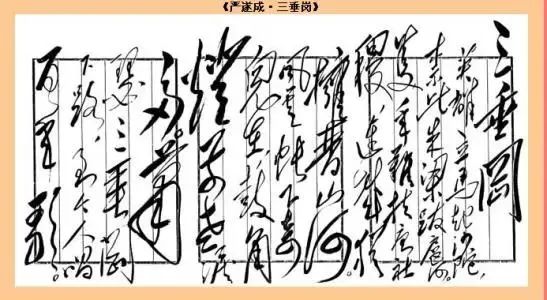 《严遂成·三垂岗》
三垂冈
英雄立马起沙陀，
奈此朱梁跋扈何。
隻手難扶唐社
稷，连城犹
擁晋山河。
風雲帐下奇
兒在，鼓角
燈前老淚
多。萧
瑟三垂冈
下路，至今人唱
百年歌。